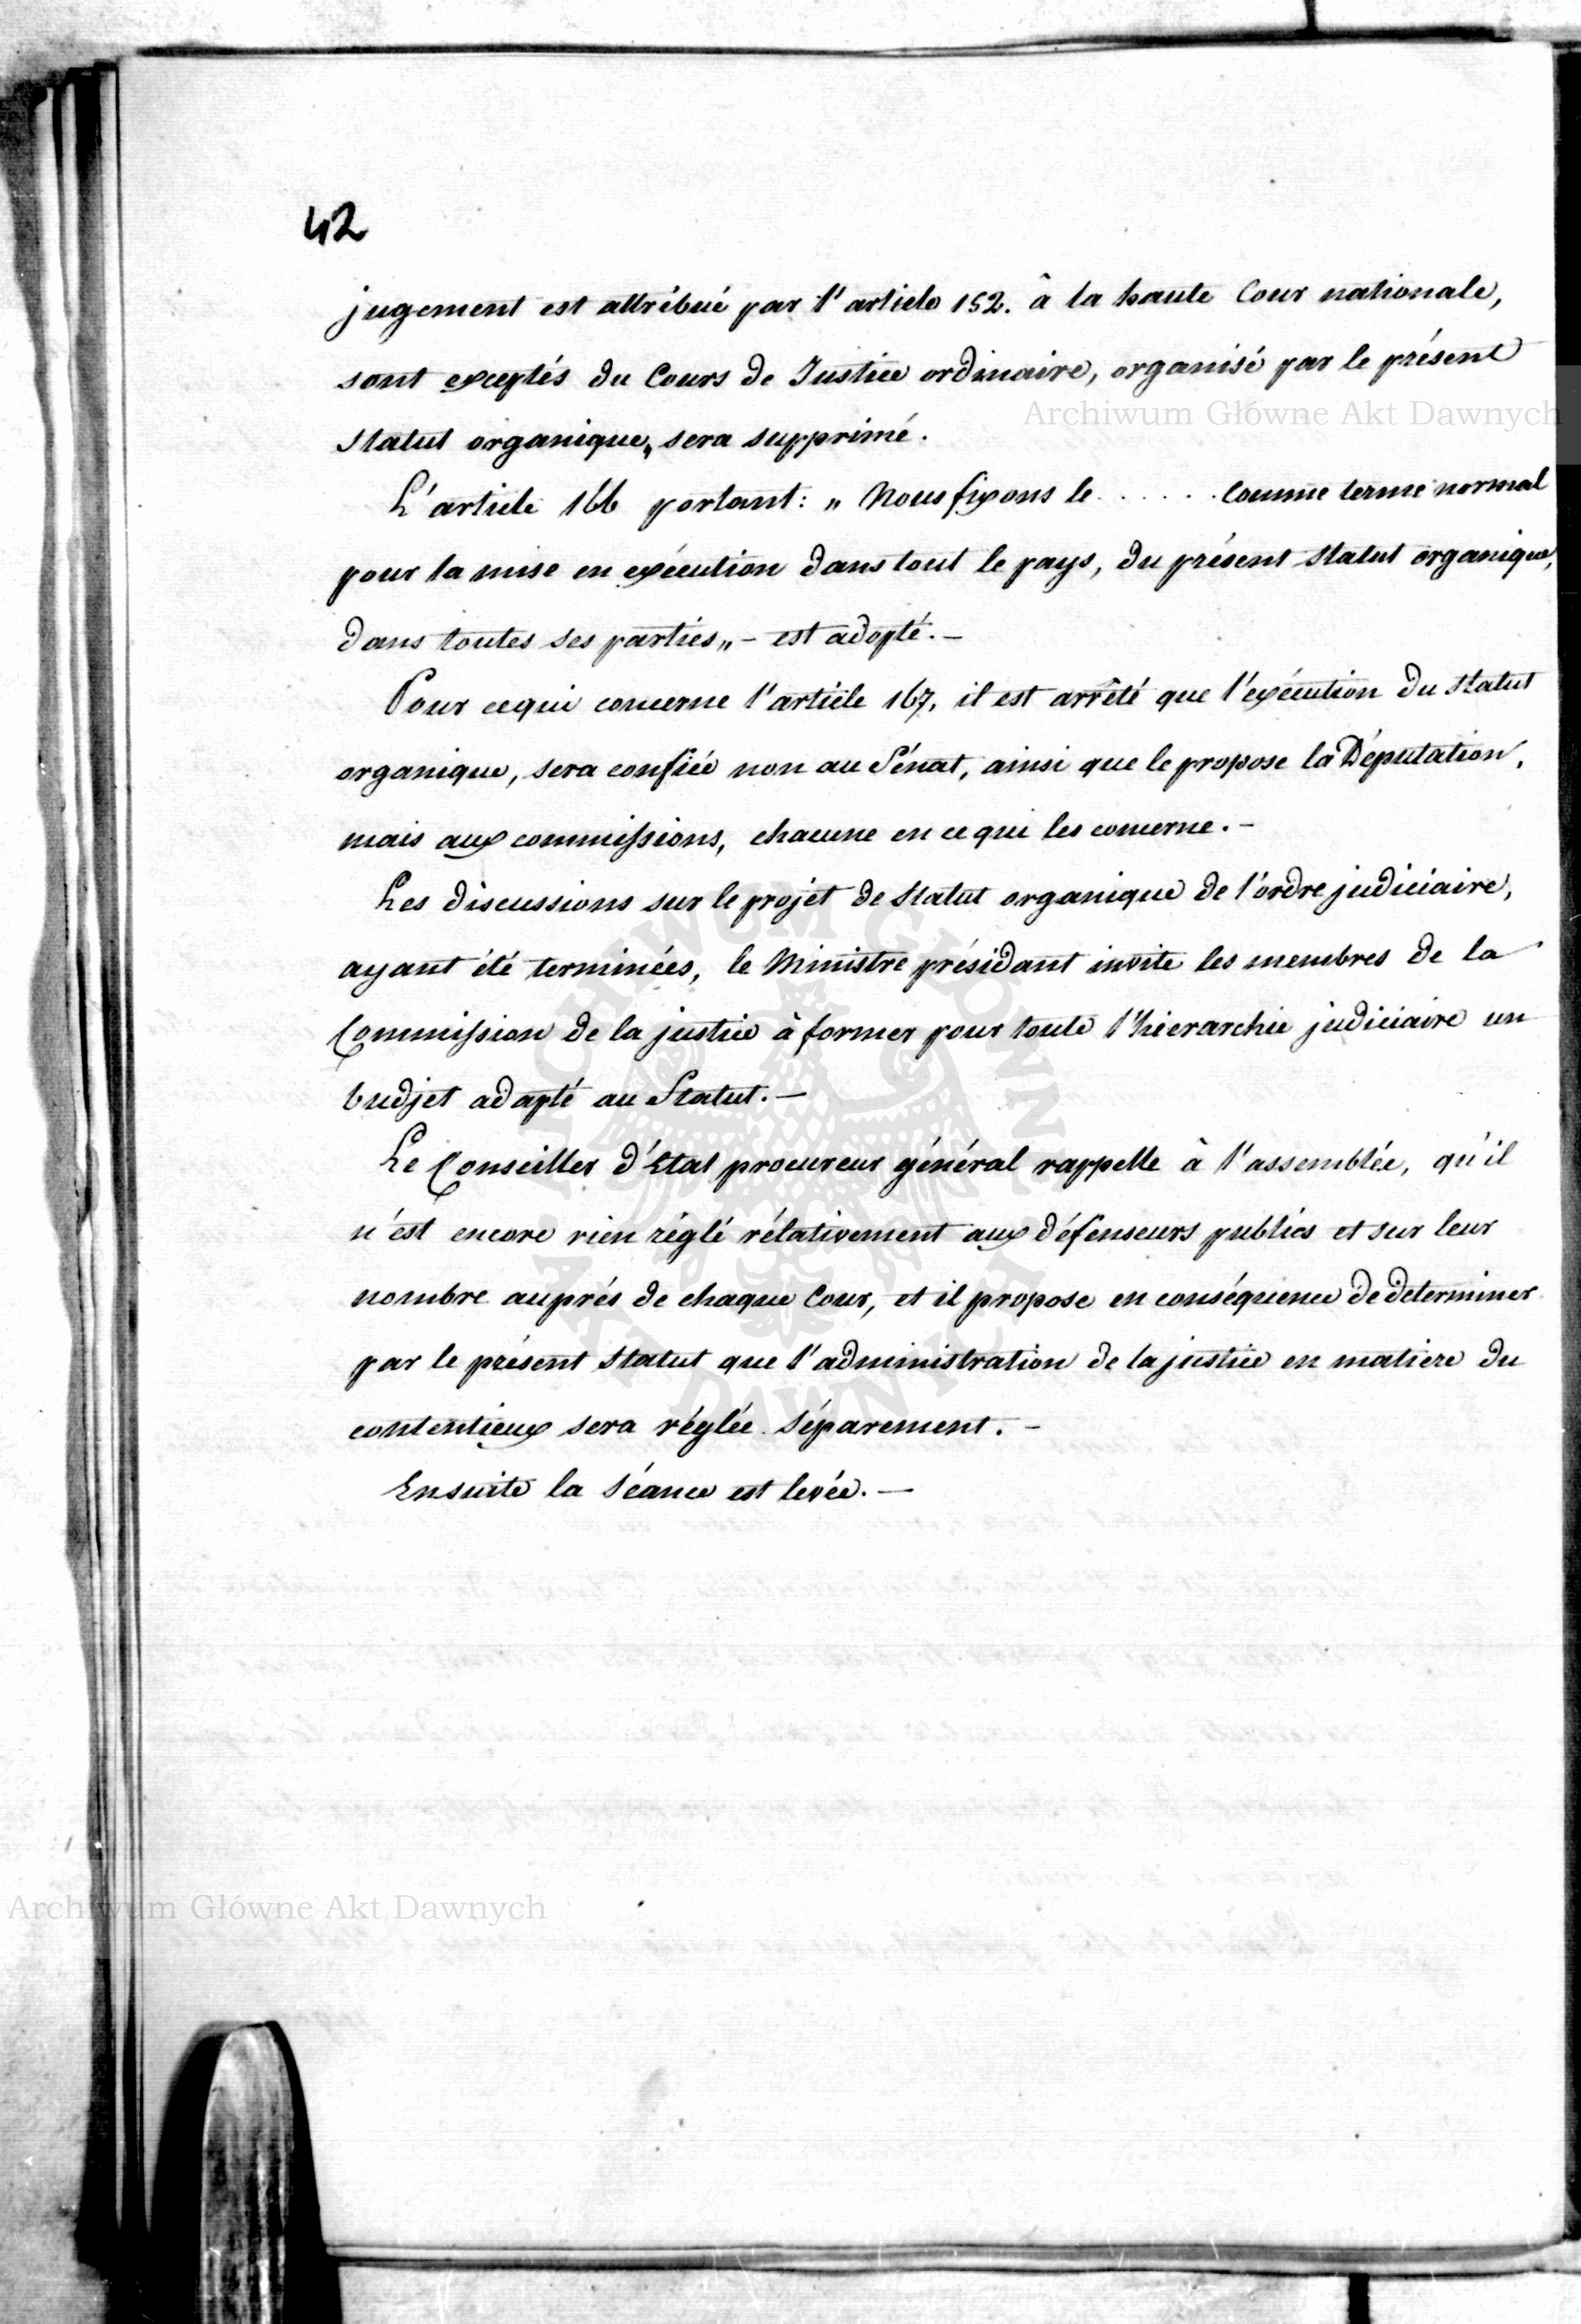 42
jugement est attribué par l'article 152. à la haute Cour nationale,
sont exceptés du Cours de Justice ordinaire, organisé par le présent
Statut organique„ sera supprimé.
L'article 166 portant: „ Nous fixons le . . . . . . comme terme normal
pour la mise en exécution dans tout le pays, du présent Statut organique,
dans toutes ses parties„ – est adopté. –
Pour cequi concerne l'article 167, il est arrêté que l'exécution du Statut
organique, sera confiée non au Sénat, ainsi que le propose la Députation,
mais aux commissions, chacune en ce qui les concerne. –
Les discussions sur le projet de Statut organique de l'ordre judiciaire,
ayant été terminées, le Ministre présidant invite les membres de la
Commission de la justice à former pour toute l'hierarchie judiciaire un
budjet adapté au Statut. –
Le Conseiller d'Etat procureur général rappelle à l'assemblée, qu'il
n'est encore rien réglé rélativement aux défenseurs publics et sur leur
nombre auprés de chaque Cour, et il propose en conséquence de determiner
par le présent Statut que l'administration de la justice en matiere du
contentieux sera réglée séparement. –
Ensuite la Séance est levée. –
Archiwum Główne Akt Dawnych
Archiwum Główne Akt Dawnych
ARCHIWUM GŁÓWNE AKT DAWNYCH